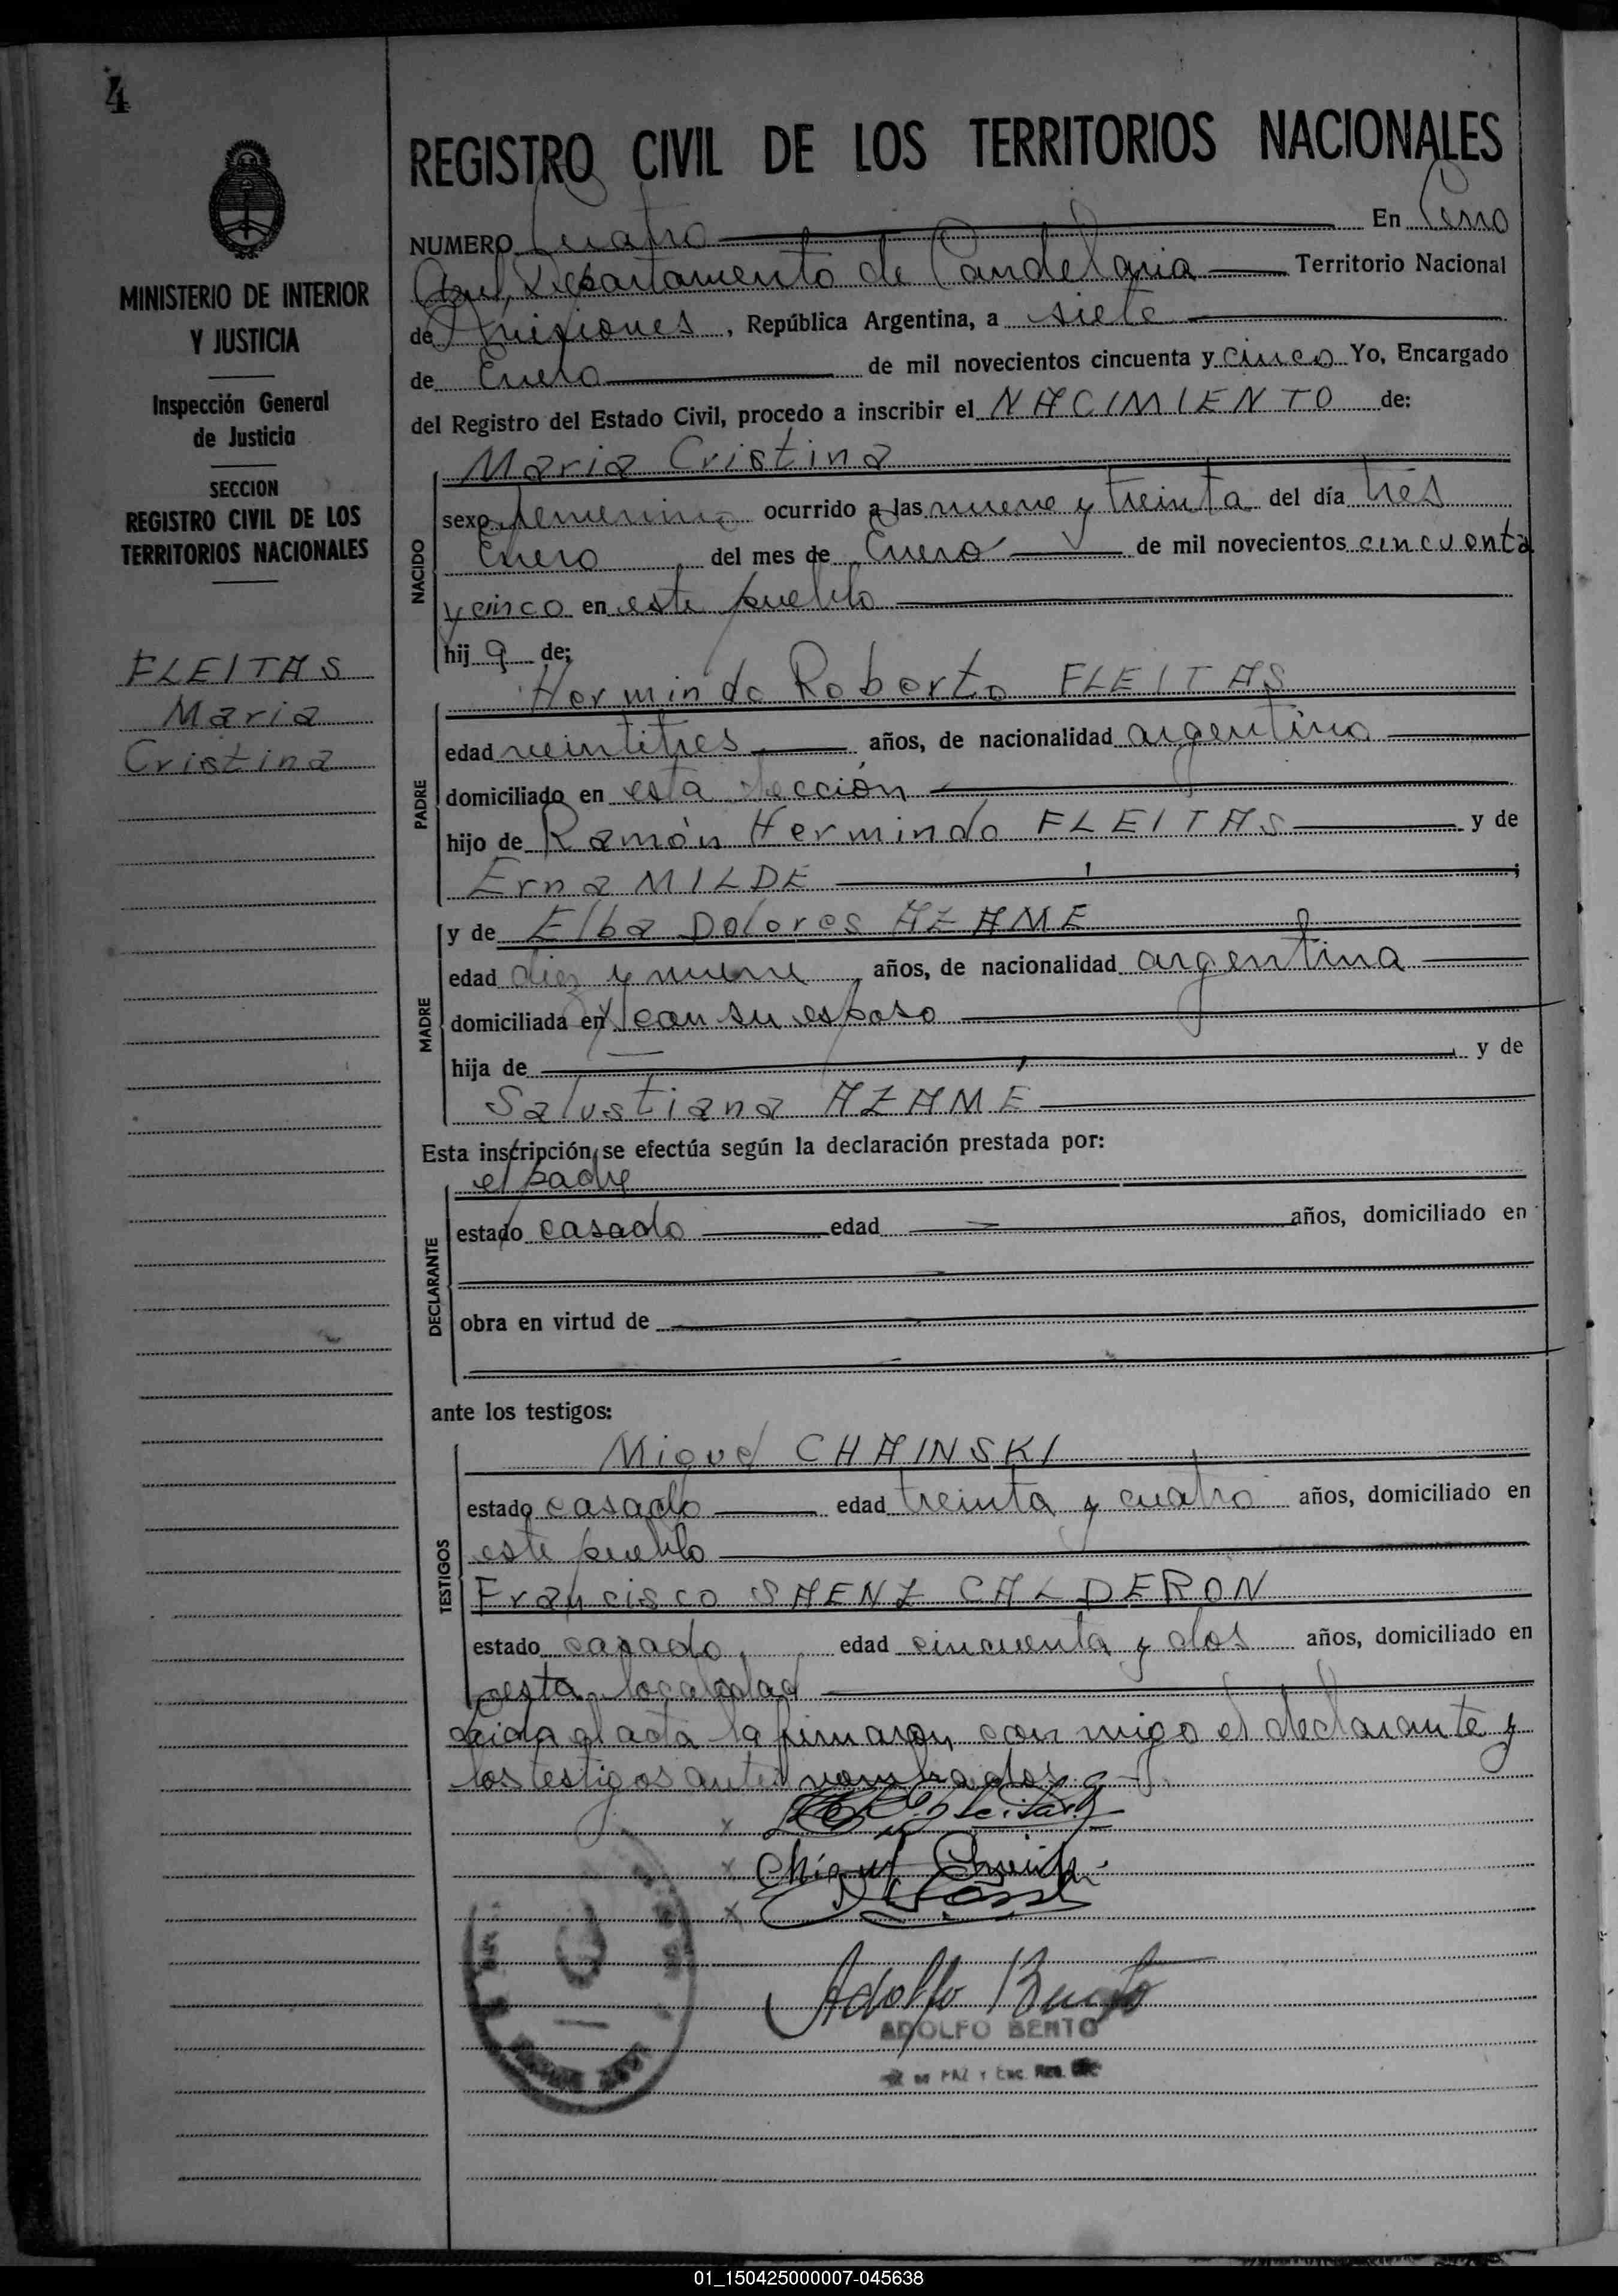 4
MINISTERIO DE INTERIOR
Y JUSTICIA
Inspección General
de Justicia
SECCION
REGISTRO CIVIL DE LOS
TERRITORIOS NACIONALES
FLEITAS
Maria
Cristina
REGISTRO CIVIL DE LOS TERRITORIOS NACIONALES
NUMERO Cuatro En Cerro
Azul, Departamento de Candelaria Territorio Nacional
de Misiones, República Argentina, a siete
de Enero de mil novecientos cincuenta y cinco Yo, Encargado
del Registro del Estado Civil, procedo a inscribir el NACIMIENTO de:
Maria Cristina
NACIDO
sexo femenino ocurrido a las nueve y treinta del día tres
Enero del mes de Enero de mil novecientos cincuenta
y cinco en este pueblo
hij a de:
PADRE
Hermindo Roberto FLEITAS
edad veintitres años, de nacionalidad argentino
domiciliado en esta sección
hijo de Ramón Hermindo FLEITAS y de
Erna MILDE
MADRE
y de Elba Dolores AZAME
edad diez y nueve años, de nacionalidad argentina
domiciliada en con su esposo
hija de y de
Salustiana AZAME
Esta inscripción se efectúa según la declaración prestada por:
DECLARANTE
el padre
estado casado edad años, domiciliado en
obra en virtud de
ante los testigos:
TESTIGOS
Miguel CHAINSKI
estado casado edad treinta y cuatro años, domiciliado en
este pueblo
Francisco SAENZ CALDERON
estado casado edad cincuenta y dos años, domiciliado en
esta localidad
leida el acta la firmaron con migo el declarante y
los testigos antes nombrados
Adolfo Bento
ADOLFO BENTO
DE PAZ Y ENC. REG.
01_150425000007-045638